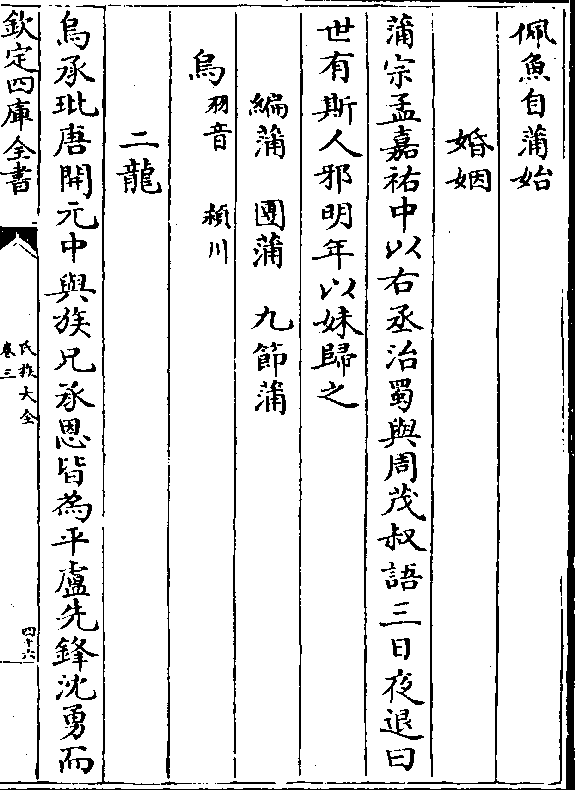 佩魚自蒲始
婚姻
蒲宗孟嘉祐中以右丞治蜀與周茂叔語三日夜退曰
世有斯人邪明年以妹歸之
編蒲　團蒲　九節蒲
烏　羽音　潁川
二龍
烏承玼唐開元中與族兄承恩皆為平盧先鋒沈勇而
欽定四庫全書
氏族大全
卷三
四十六